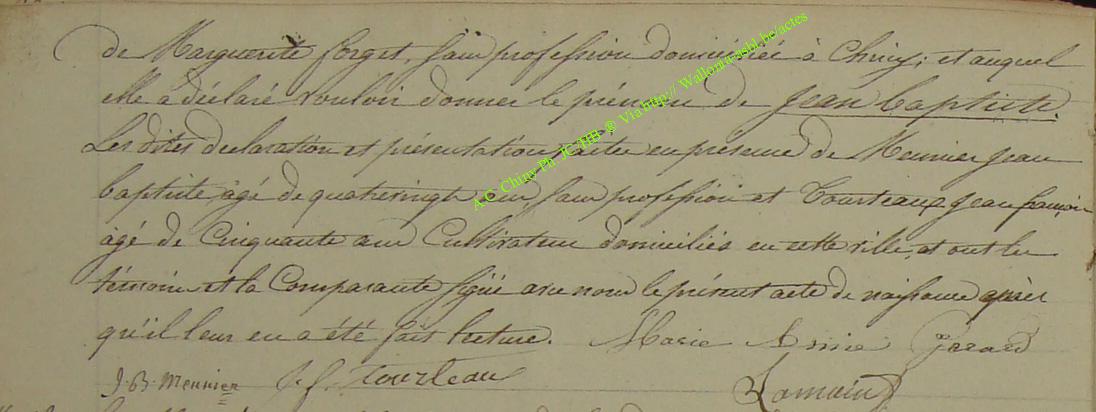 de Marguerite forget, sans profession domiciliée à Chiny; et auquel
elle a déclaré vouloir donner le prénom de Jean baptiste.
Les dites declaration et présentation faites en présence de Meunier Jean
baptiste âgé de quatrevingt ans sans profession et Tourteaux Jean françois
âgé de Cinquante ans Cultivateur domiciliés en cette ville, et ont les
témoins et la Comparante signé avec nous le présent acte de naissance après
qu'il leur en a été fait lecture. Marie Anne Gérard
J. B. Meunier J. f. Tourteau Lomain
A.C. Chiny Ph JC/HB ® Via http:// Wallonia-asbl.be/actes